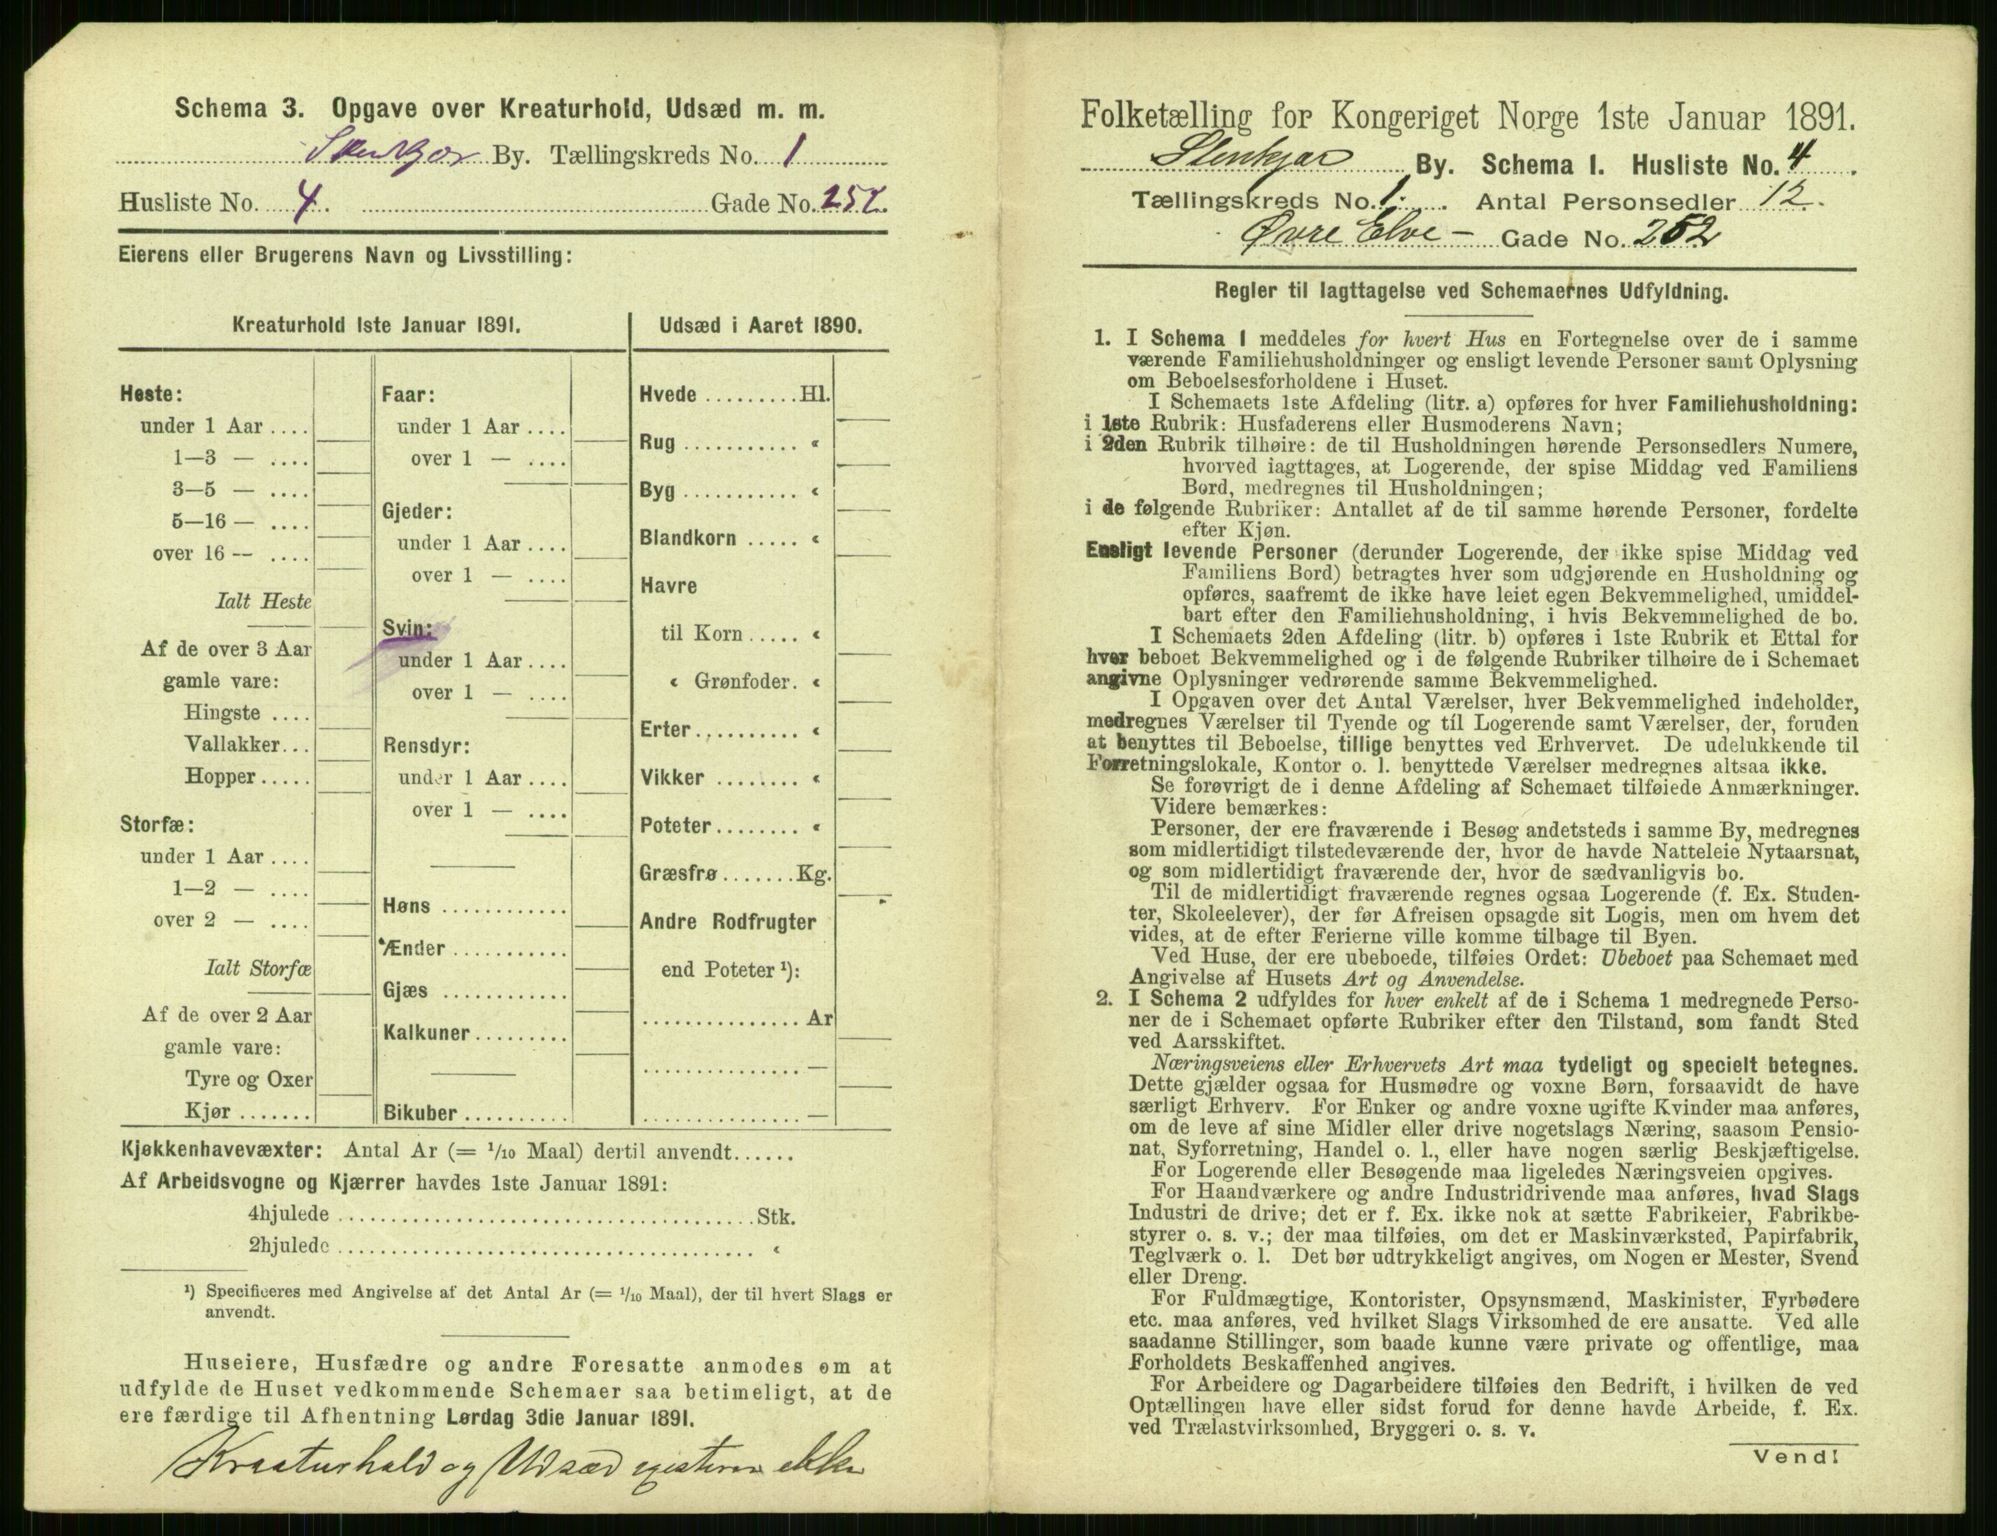 Schema 3. Opgave over Kreaturhold, Udsæd m. m.
Stenkjær By. Tællingskreds No. 1
Husliste No. 4. Gade No. 252.
Eierens eller Brugerens Navn og Livsstilling:
Kreaturhold 1ste Januar 1891.
Heste:
under 1 Aar ....
1—3 — ....
3—5 — ....
5—16 — ....
over 16 — ....
Ialt Heste
Af de over 3 Aar
gamle vare:
Hingste ....
Vallakker...
Hopper.....
Storfæ:
under 1 Aar ....
1—2 — ....
over 2 — ....
Ialt Storfæ
Af de over 2 Aar
gamle vare:
Tyre og Oxer
Kjør .......
Faar:
under 1 Aar ....
over 1 — ....
Gjeder:
under 1 Aar ....
over 1 — ....
Svin:
under 1 Aar ....
over 1 — ....
Rensdyr:
under 1 Aar ....
over 1 — ....
Høns ............
Ænder ..........
Gjæs ............
Kalkuner.........
Bikuber ..........
Udsæd i Aaret 1890.
Hvede .........Hl.
Rug ........... «
Byg ........... «
Blandkorn ..... «
Havre
til Korn ..... «
« Grønfoder. «
Erter.......... «
Vikker ........ «
Poteter........ «
Græsfrø.......Kg.
Andre Rodfrugter
end Poteter ¹):
............... Ar
............... —
............... —
Kjøkkenhavevæxter: Antal Ar (= 1/10 Maal) dertil anvendt......
Af Arbeidsvogne og Kjærrer havdes 1ste Januar 1891:
4hjulede ........................................Stk.
2hjulede ........................................ «
¹) Specificeres med Angivelse af det Antal Ar (= 1/10 Maal), der til hvert Slags er
anvendt.
Huseiere, Husfædre og andre Foresatte anmodes om at
udfylde de Huset vedkommende Schemaer saa betimeligt, at de
ere færdige til Afhentning Lørdag 3die Januar 1891.
Kreaturhold og Udsæd existerer ikke
Folketælling for Kongeriget Norge 1ste Januar 1891.
Stenkjær By. Schema I. Husliste No. 4
Tællingskreds No. 1. Antal Personsedler 12.
Øvre Elve- Gade No. 252
Regler til Iagttagelse ved Schemaernes Udfyldning.
1. I Schema 1 meddeles for hvert Hus en Fortegnelse over de i samme
værende Familiehusholdninger og ensligt levende Personer samt Oplysning
om Beboelsesforholdene i Huset.
I Schemaets 1ste Afdeling (litr. a) opføres for hver Familiehusholdning:
i 1ste Rubrik: Husfaderens eller Husmoderens Navn;
i 2den Rubrik tilhøire: de til Husholdningen hørende Personsedlers Numere,
hvorved iagttages, at Logerende, der spise Middag ved Familiens
Bord, medregnes til Husholdningen;
i de følgende Rubriker: Antallet af de til samme hørende Personer, fordelte
efter Kjøn.
Ensligt levende Personer (derunder Logerende, der ikke spise Middag ved
Familiens Bord) betragtes hver som udgjørende en Husholdning og
opføres, saafremt de ikke have leiet egen Bekvemmelighed, umiddel-
bart efter den Familiehusholdning, i hvis Bekvemmelighed de bo.
I Schemaets 2den Afdeling (litr. b) opføres i 1ste Rubrik et Ettal for
hver beboet Bekvemmelighed og i de følgende Rubriker tilhøire de i Schemaet
angivne Oplysninger vedrørende samme Bekvemmelighed.
I Opgaven over det Antal Værelser, hver Bekvemmelighed indeholder,
medregnes Værelser til Tyende og til Logerende samt Værelser, der, foruden
at benyttes til Beboelse, tillige benyttes ved Erhvervet. De udelukkende til
Forretningslokale, Kontor o. l. benyttede Værelser medregnes altsaa ikke.
Se forøvrigt de i denne Afdeling af Schemaet tilføiede Anmærkninger.
Videre bemærkes:
Personer, der ere fraværende i Besøg andetsteds i samme By, medregnes
som midlertidigt tilstedeværende der, hvor de havde Natteleie Nytaarsnat,
og som midlertidigt fraværende der, hvor de sædvanligvis bo.
Til de midlertidigt fraværende regnes ogsaa Logerende (f. Ex. Studen-
ter, Skoleelever), der før Afreisen opsagde sit Logis, men om hvem det
vides, at de efter Ferierne ville komme tilbage til Byen.
Ved Huse, der ere ubeboede, tilføies Ordet: Ubeboet paa Schemaet med
Angivelse af Husets Art og Anvendelse.
2. I Schema 2 udfyldes for hver enkelt af de i Schema 1 medregnede Perso-
ner de i Schemaet opførte Rubriker efter den Tilstand, som fandt Sted
ved Aarsskiftet.
Næringsveiens eller Erhvervets Art maa tydeligt og specielt betegnes.
Dette gjælder ogsaa for Husmødre og voxne Børn, forsaavidt de have
særligt Erhverv. For Enker og andre voxne ugifte Kvinder maa anføres,
om de leve af sine Midler eller drive nogetslags Næring, saasom Pensio-
nat, Syforretning, Handel o. l., eller have nogen særlig Beskjæftigelse.
For Logerende eller Besøgende maa ligeledes Næringsveien opgives.
For Haandværkere og andre Industridrivende maa anføres, hvad Slags
Industri de drive; det er f. Ex. ikke nok at sætte Fabrikeier, Fabrikbe-
styrer o. s. v.; der maa tilføies, om det er Maskinværksted, Papirfabrik,
Teglværk o. l. Det bør udtrykkeligt angives, om Nogen er Mester, Svend
eller Dreng.
For Fuldmægtige, Kontorister, Opsynsmænd, Maskinister, Fyrbødere
etc. maa anføres, ved hvilket Slags Virksomhed de ere ansatte. Ved alle
saadanne Stillinger, som baade kunne være private og offentlige, maa
Forholdets Beskaffenhed angives.
For Arbeidere og Dagarbeidere tilføies den Bedrift, i hvilken de ved
Optællingen have eller sidst forud for denne havde Arbeide, f. Ex.
ved Trælastvirksomhed, Bryggeri o. s. v.
Vend!